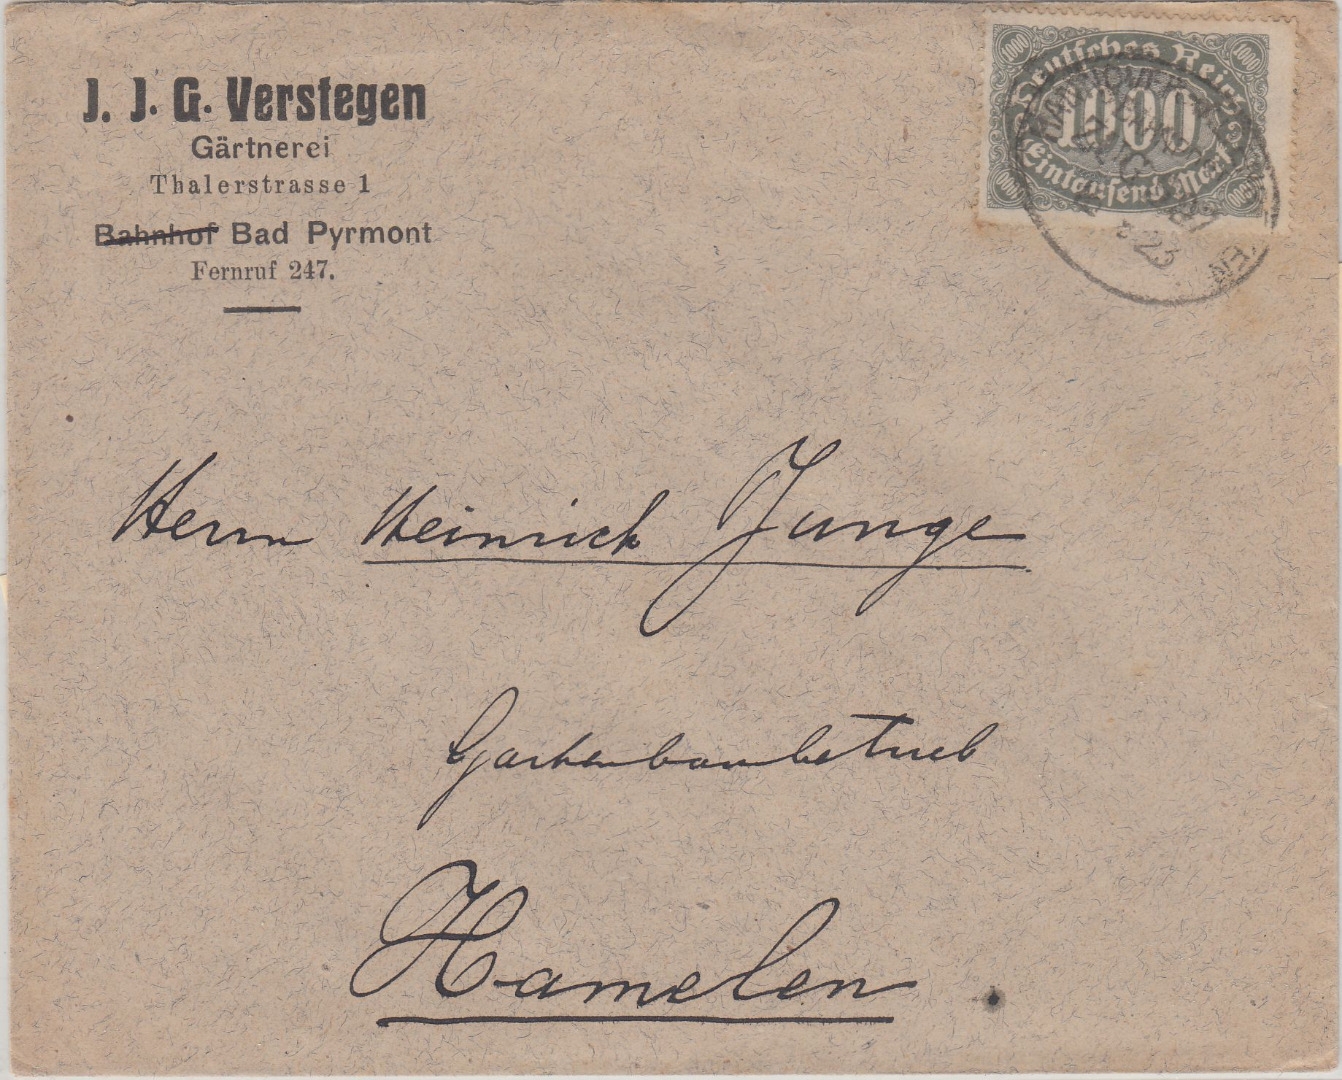 J. J. G. Verstegen
Gärtnerei
Thalerstrasse 1
Bahnhof Bad Pyrmont
Fernruf 247.
1000 1000
Deutsches Reich
1000
Eintausend Mark
1000 1000
HANNOVER
ZUG
23
Herrn Heinrich Junge
Gartenbaubetrieb
Hamelen